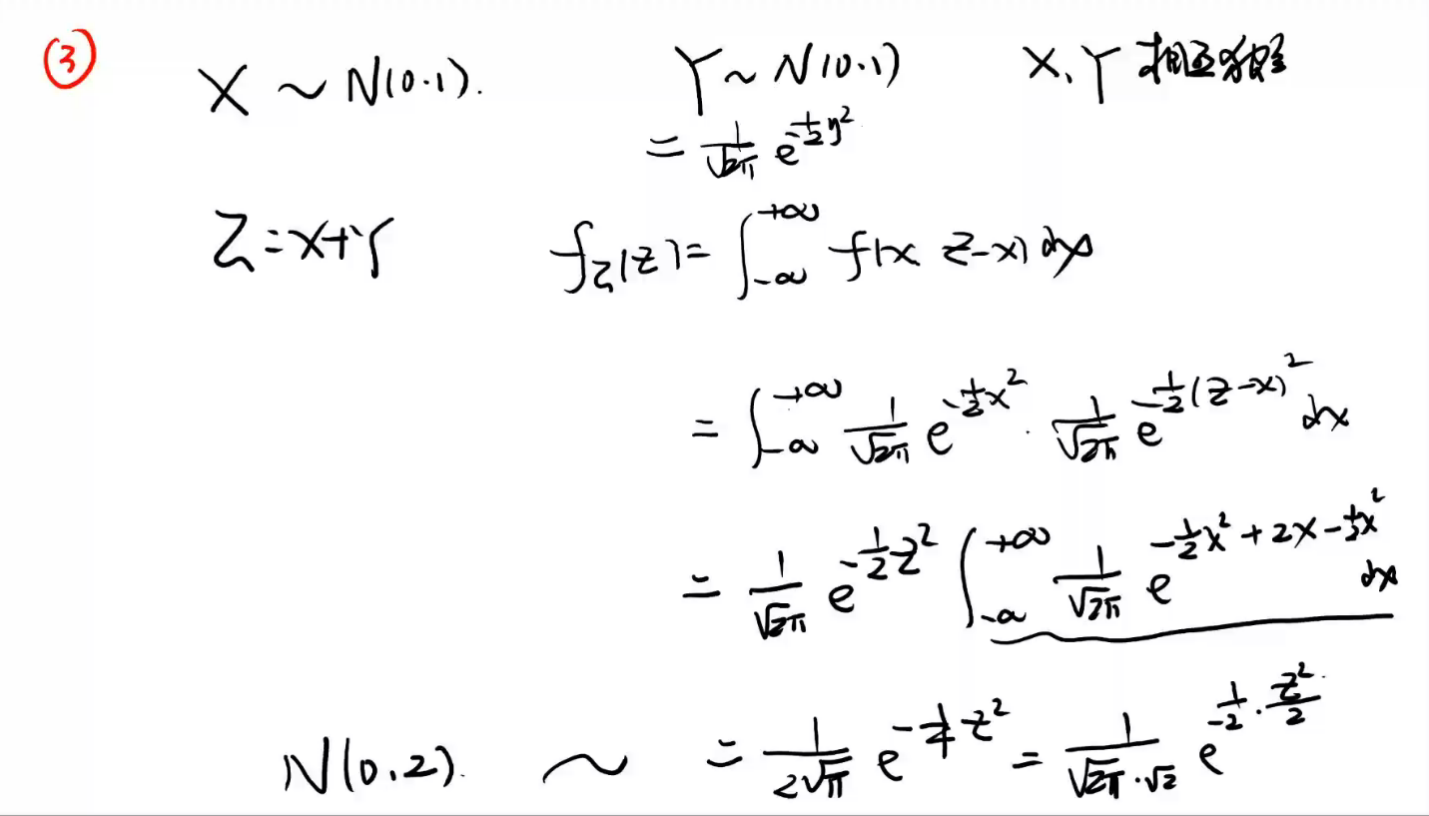 ③ X ~ N(0.1). Y ~ N(0.1) X、Y 相互独立
= \frac{1}{\sqrt{2π}} e^{-\frac{1}{2}y^2}
Z=X+Y f_Z(z)= ∫_{-∞}^{+∞} f(x z-x) dx
= ∫_{-∞}^{+∞} \frac{1}{\sqrt{2π}} e^{-\frac{1}{2}x^2} · \frac{1}{\sqrt{2π}} e^{-\frac{1}{2}(z-x)^2} dx
= \frac{1}{\sqrt{2π}} e^{-\frac{1}{2}z^2} ∫_{-∞}^{+∞} \frac{1}{\sqrt{2π}} e^{-\frac{1}{2}x^2+2x-\frac{1}{2}x^2} dx
N(0.2). ~ = \frac{1}{2\sqrt{π}} e^{-\frac{1}{4}z^2} = \frac{1}{\sqrt{2π}·\sqrt{2}} e^{-\frac{1}{2}·\frac{z^2}{2}}